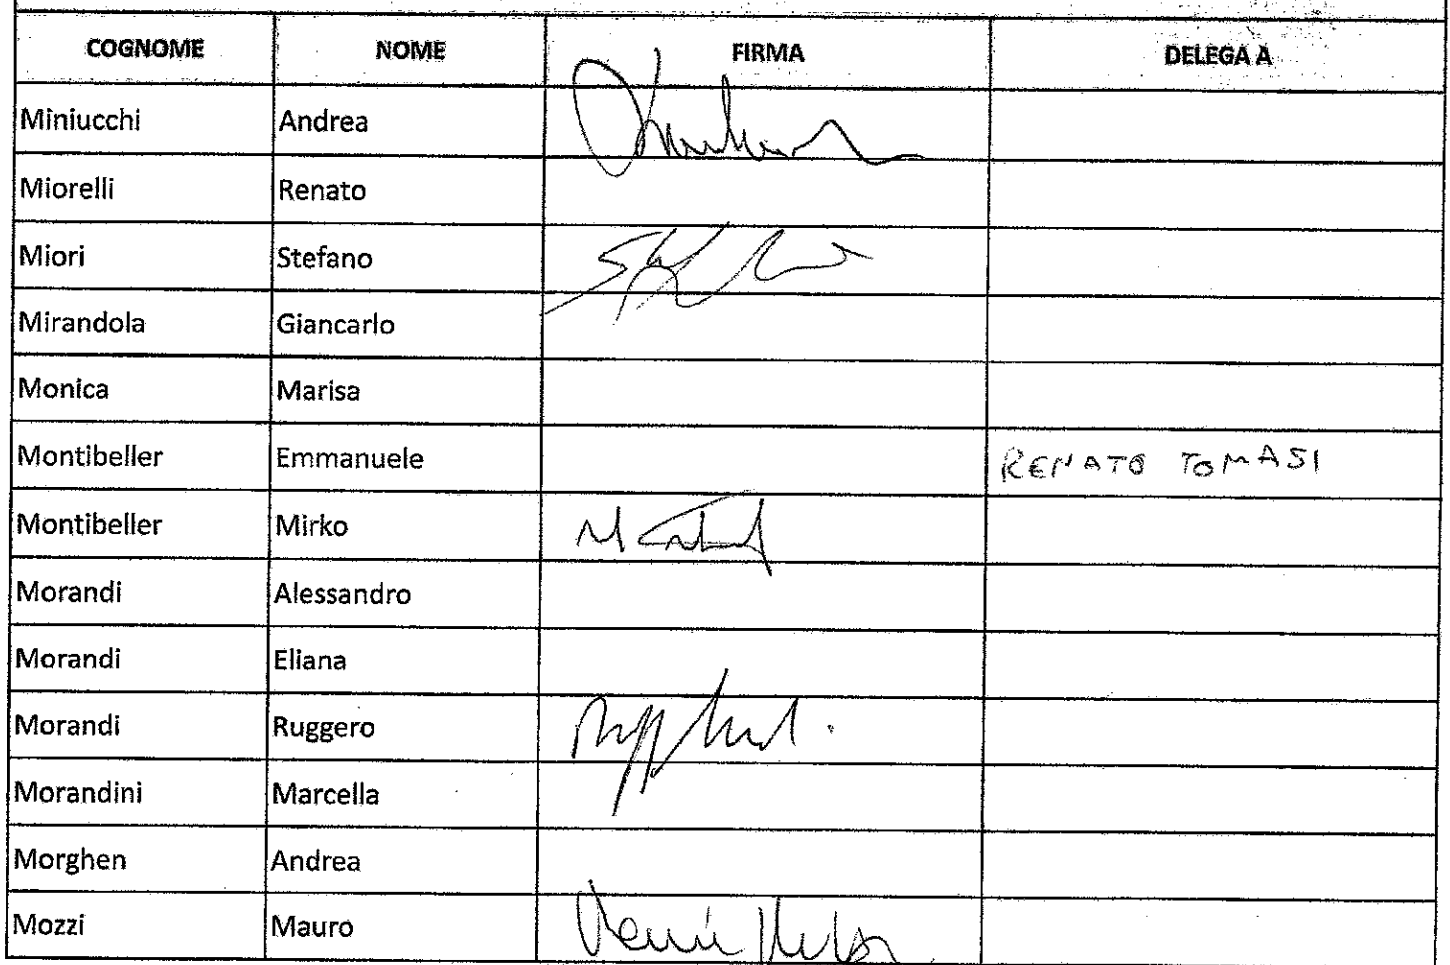 COGNOME NOME FIRMA DELEGA A
Miniucchi Andrea
Miorelli Renato
Miori Stefano
Mirandola Giancarlo
Monica Marisa
Montibeller Emmanuele RENATO TOMASI
Montibeller Mirko
Morandi Alessandro
Morandi Eliana
Morandi Ruggero
Morandini Marcella
Morghen Andrea
Mozzi Mauro